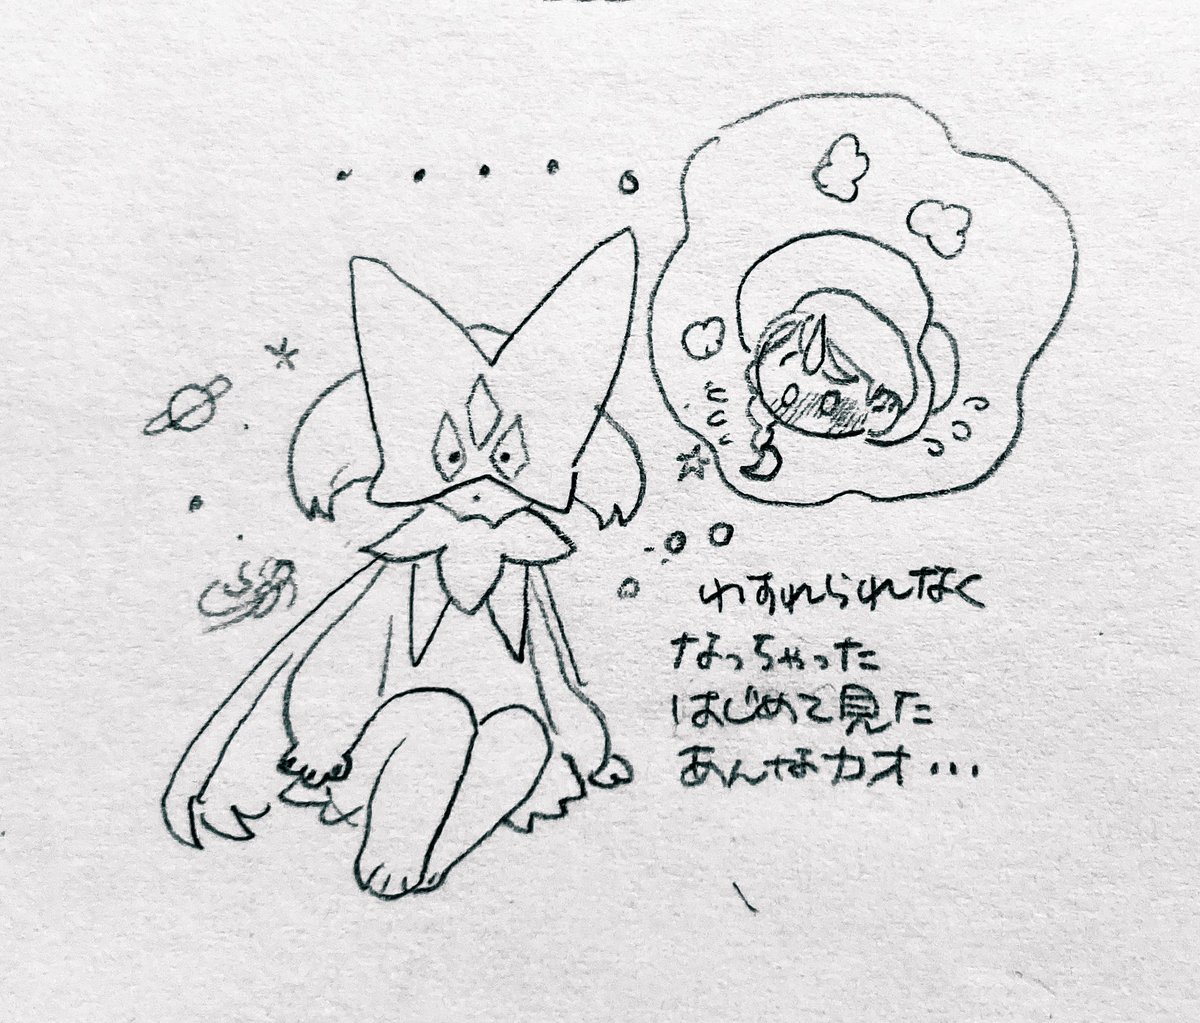 わすれられなく
なっちゃった
はじめて見た
あんなカオ…